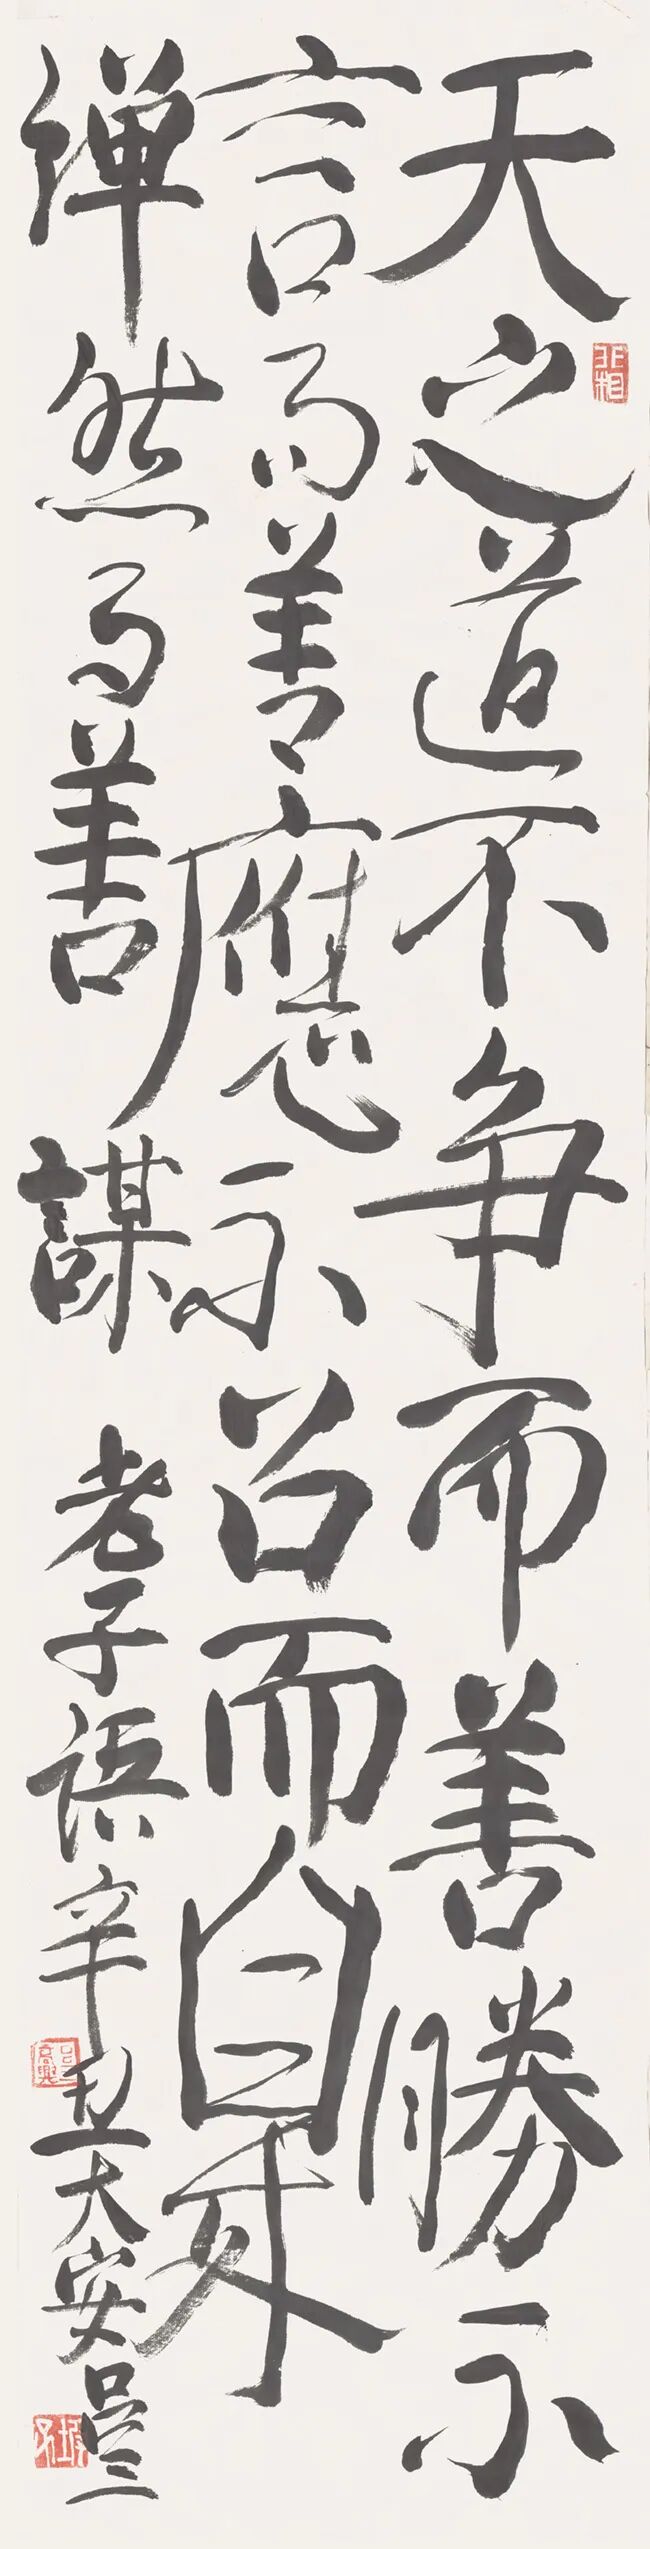 天之道不争而善勝不
言而善應不召而自来
繟然而善謀 老子語 辛丑大安吕三
非相